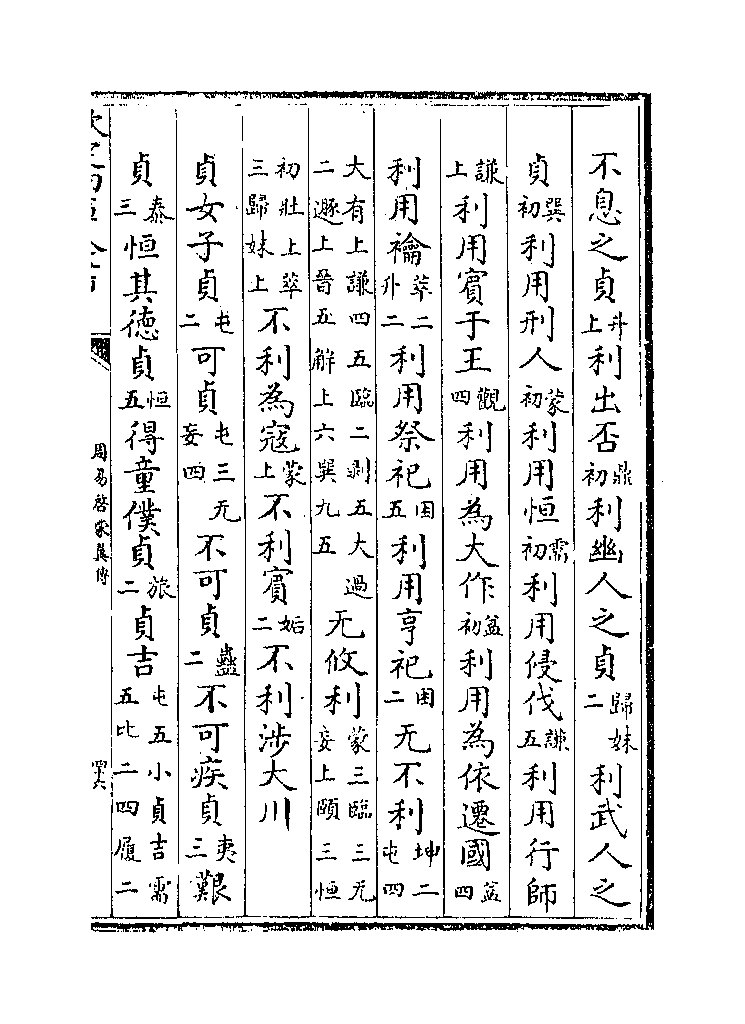 不息之貞升上利出否鼎初利幽人之貞歸妹二利武人之
貞巽初利用刑人蒙初利用恒需初利用侵伐謙五利用行師
謙上利用賓于王觀四利用為大作益初利用為依遷國益四
利用禴萃二升二利用祭祀困五利用亨祀困二无不利坤二屯四
大有上謙四五臨二剥五大過二遯上晉五解上六巽九五无攸利蒙三臨三无妄上頤三恒
初壯上萃三歸妹上不利為寇蒙上不利賓姤二不利涉大川
貞女子貞屯二可貞屯三无妄四不可貞蠱二不可疾貞夷三艱
貞泰三恒其德貞恒五得童僕貞旅二貞吉屯五小貞吉需五比二四履二
周易啓蒙翼傳